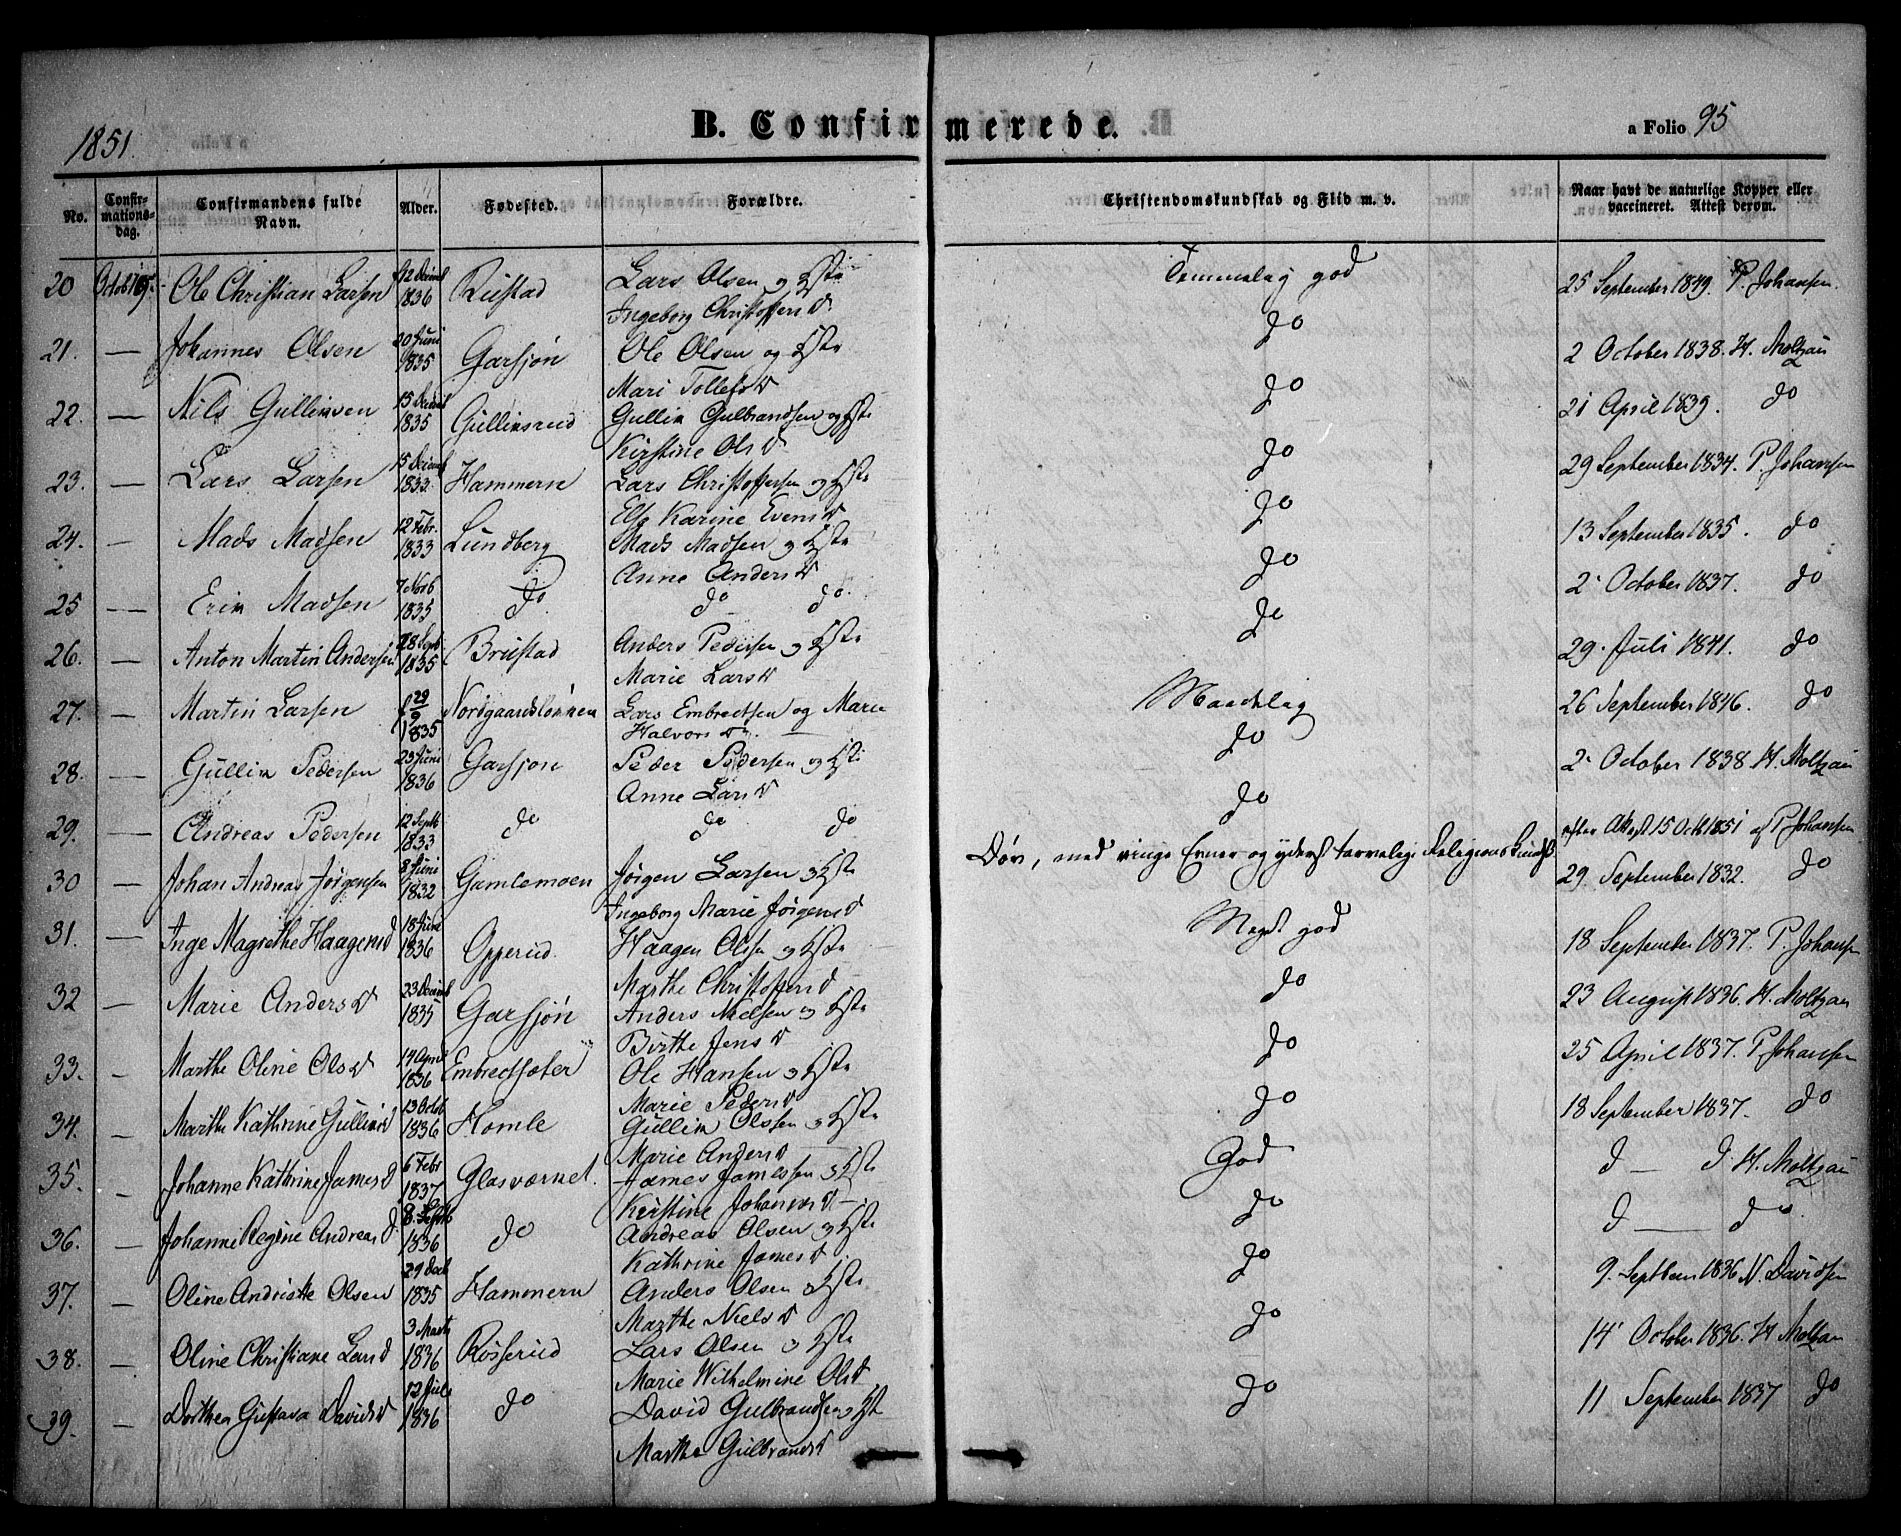 1851.
B. Confirmerede.
a Folio 95
No.
Confirmationsdag.
Confirmandens fulde Navn.
Alder.
Fødested.
Forældre.
Christendomskundskab og Flid m. v.
Naar havt de naturlige Kopper eller vaccineret. Attest derom.
20 Octob 19de Ole Christian Larsen 12 Decemb 1836 Rustad Lars Olsen og Hstr Temmelig god 25 September 1849. P. Johansen.
Ingeborg Christoffersd
21. — Johannes Olsen 20 Juni 1835 Garsjøn Ole Olsen og Hstr do 2 October 1838. H. Moltzau
Mari Tollefsd
22. — Nils Gullixsen 15 Decemb 1835 Gullixsrud Gullix Gulbrandsen og Hstr do 21 April 1839. do
Kirstine Olsd
23. — Lars Larsen 15 Decemb 1833 Hammern Lars Christoffersen og Hstr do 29 September 1834. P. Johansen
Else Karine Evensd
24. — Mads Madsen 12 Febr. 1833 Lundberg Mads Madsen og Hstr do 13 September 1835. do
Anne Andersd
25 — Erik Madsen 7 Novb 1835 do do do do 2 October 1837. do
26. — Anton Martin Andersen 28 Sept 1835 Brustad Anders Pedersen og Hstr do 29 Juli 1841. do
Marie Larsd
27. — Martin Larsen 29/9 1835 Nordgaardslønnen Lars Embretsen og Marie Maadelig 26 September 1846. do
Halvorsd
28. — Gullik Pedersen 23 Juni 1836 Garsjøn Peder Pedersen og Hstr do 2 October 1838 H. Moltzau
Anne Larsd
29. — Andreas Pedersen 12 Septb 1833 do do do do efter Attest 15 Octb 1851 af P. Johansen
30 Johan Andreas Jørgensen 8 Juni 1832 Gamlemoen Jørgen Larsen og Hstr Døv, med ringe Evner og yderst tarvelig Religionskundsk 29 September 1832. do
Ingeborg Marie Jørgensd
31. — Inge Magrethe Haagensd 18 Juni 1836 Opperud. Haagen Olsen og Hstr Meget god 18 September 1837. P. Johansen
Marthe Christoffersd
32 — Marie Andersd 23 Decemb 1835 Garsjøn Anders Nielsen og Hstr do 23 August 1836. H. Moltzau
Birthe Jensd
33. — Marthe Oline Olsd 14 April 1836 Embretsæter Ole Hansen og Hstr do 25 April 1837. P. Johansen
Marie Pedersd
34. — Marthe Kathrine Gullixsd 13 Octob 1836 Homle Gullix Olsen og Hstr do 18 September 1837. do
Marie Andersd
35. — Johanne Kathrine Jamesd 6 Febr 1837 Glasværnet. James Jamessen og Hstr God d — d H. Moltzau
Kirstine Johannesd
36. — Johanne Regine Andreasd. 8 Septb 1836 do Andreas Olsen og Hstr do d — do
Kathrine Jamesd
37. — Oline Andriette Olsen 29 Decb 1835 Hammern Anders Olsen og Hstr do 9. Septbem 1836 N. Davidsen
Marthe Nielsd
38. — Oline Christiane Larsd 3 Marts 1836 Røsserud Lars Olsen og Hstr do 14 October 1836. H. Moltzau
Marie Wilhelmine Olsd.
39. — Dorthea Gustava Davidsd 12 Juli 1836 do David Gulbrandsen og Hstr do 11 September 1837 do
Marthe Gulbrandsd